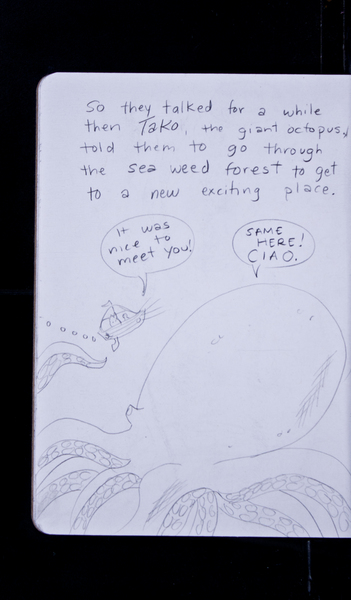 So they talked for a while
then Tako, the giant octopus,
told them to go through
the sea weed forest to get
to a new exciting place.
It was
nice to
meet you!
SAME
HERE!
CIAO.